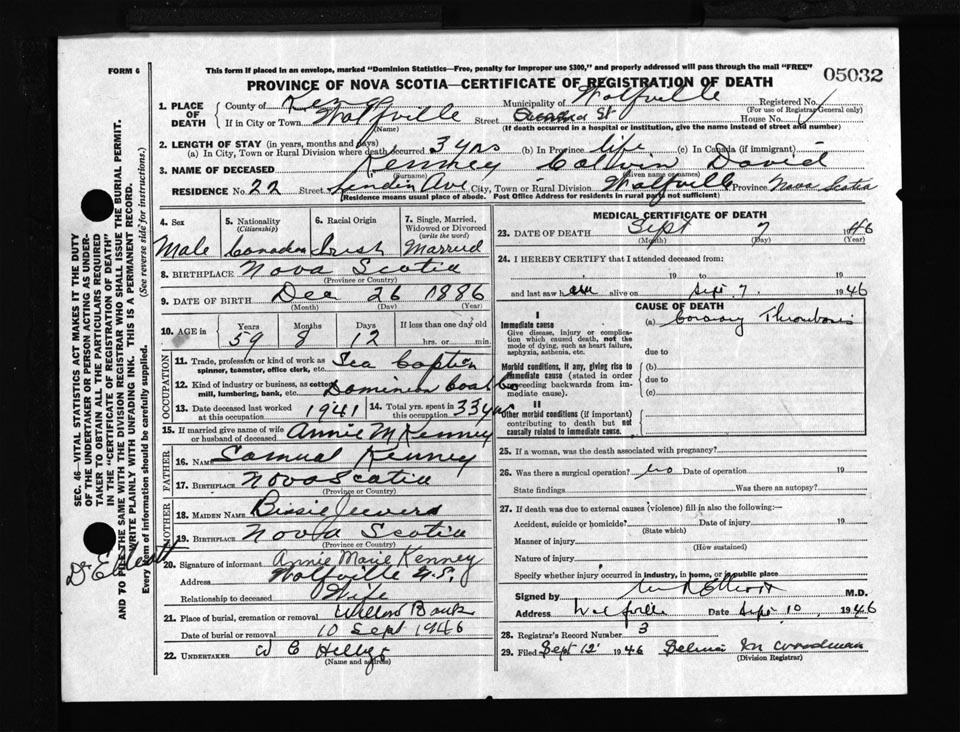 FORM 6
This form if placed in an envelope, marked "Dominion Statistics—Free, penalty for improper use $300," and properly addressed will pass through the mail "FREE"
PROVINCE OF NOVA SCOTIA—CERTIFICATE OF REGISTRATION OF DEATH
05032
1. PLACE OF DEATH
County of Kings Municipality of Wolfville Registered No.
(For use of Registrar General only)
If in City or Town Wolfville Street St House No.
(Name) (If death occurred in a hospital or institution, give the name instead of street and number)
2. LENGTH OF STAY (in years, months and days)
(a) In City, Town or Rural Division where death occurred 3 yrs (b) In Province life (c) In Canada (if immigrant)
3. NAME OF DECEASED Kenney Calvin David
(Surname) (Given name or names)
RESIDENCE No. 22 Street Linden Ave City, Town or Rural Division Wolfville Province Nova Scotia
(Residence means usual place of abode. Post Office Address for residents in rural parts not sufficient)
4. Sex
Male
5. Nationality
(Citizenship)
Canadian
6. Racial Origin
Irish
7. Single, Married, Widowed or Divorced
(write the word)
Married
8. BIRTHPLACE Nova Scotia
(Province or Country)
9. DATE OF BIRTH Dec 26 1886
(Month) (Day) (Year)
10. AGE in Years Months Days If less than one day old
59 8 12 hrs. or min.
OCCUPATION
11. Trade, profession or kind of work as spinner, teamster, office clerk, etc. Sea Captin
12. Kind of industry or business, as cotton mill, lumbering, bank, etc. Dominion Coal Co
13. Date deceased last worked at this occupation 1941
14. Total yrs. spent in this occupation 33 yrs
15. If married give name of wife or husband of deceased Annie M Kenney
FATHER
16. NAME Samual Kenney
17. BIRTHPLACE Nova Scotia
(Province or Country)
MOTHER
18. MAIDEN NAME
19. BIRTHPLACE Nova Scotia
(Province or Country)
20. Signature of informant Annie Marie Kenney
Address Wolfville N.S.
Relationship to deceased Wife
21. Place of burial, cremation or removal Willow Bank
Date of burial or removal 10 Sept 1946
22. UNDERTAKER W C
(Name and address)
MEDICAL CERTIFICATE OF DEATH
23. DATE OF DEATH Sept 7 1946
(Month) (Day) (Year)
24. I HEREBY CERTIFY that I attended deceased from:
19 to 19
and last saw h alive on Sept 7. 1946
CAUSE OF DEATH
I
Immediate cause
Give disease, injury or complication which caused death, not the mode of dying, such as heart failure, asphyxia, asthenia, etc.
(a) Coronary Thrombosis
due to
Morbid conditions, if any, giving rise to immediate cause (stated in order proceeding backwards from immediate cause)
(b)
due to
(c)
II
Other morbid conditions (if important) contributing to death but not causally related to immediate cause.
25. If a woman, was the death associated with pregnancy?
26. Was there a surgical operation? no Date of operation 19
State findings Was there an autopsy?
27. If death was due to external causes (violence) fill in also the following:—
Accident, suicide or homicide? Date of injury 19
(State which)
Manner of injury
(How sustained)
Nature of injury
Specify whether injury occurred in industry, in home, or in public place
Signed by M.D.
Address Wolfville Date Sept 10, 1946
28. Registrar's Record Number 3
29. Filed Sept 12 1946 M Woodman
(Division Registrar)
SEC. 46—VITAL STATISTICS ACT MAKES IT THE DUTY
OF THE UNDERTAKER OR PERSON ACTING AS UNDER-
TAKER TO OBTAIN ALL THE PARTICULARS REQUIRED
IN THE "CERTIFICATE OF REGISTRATION OF DEATH"
AND TO FILE THE SAME WITH THE DIVISION REGISTRAR WHO SHALL ISSUE THE BURIAL PERMIT.
WRITE PLAINLY WITH UNFADING INK. THIS IS A PERMANENT RECORD.
Every item of information should be carefully supplied. (See reverse side for instructions.)
Dr